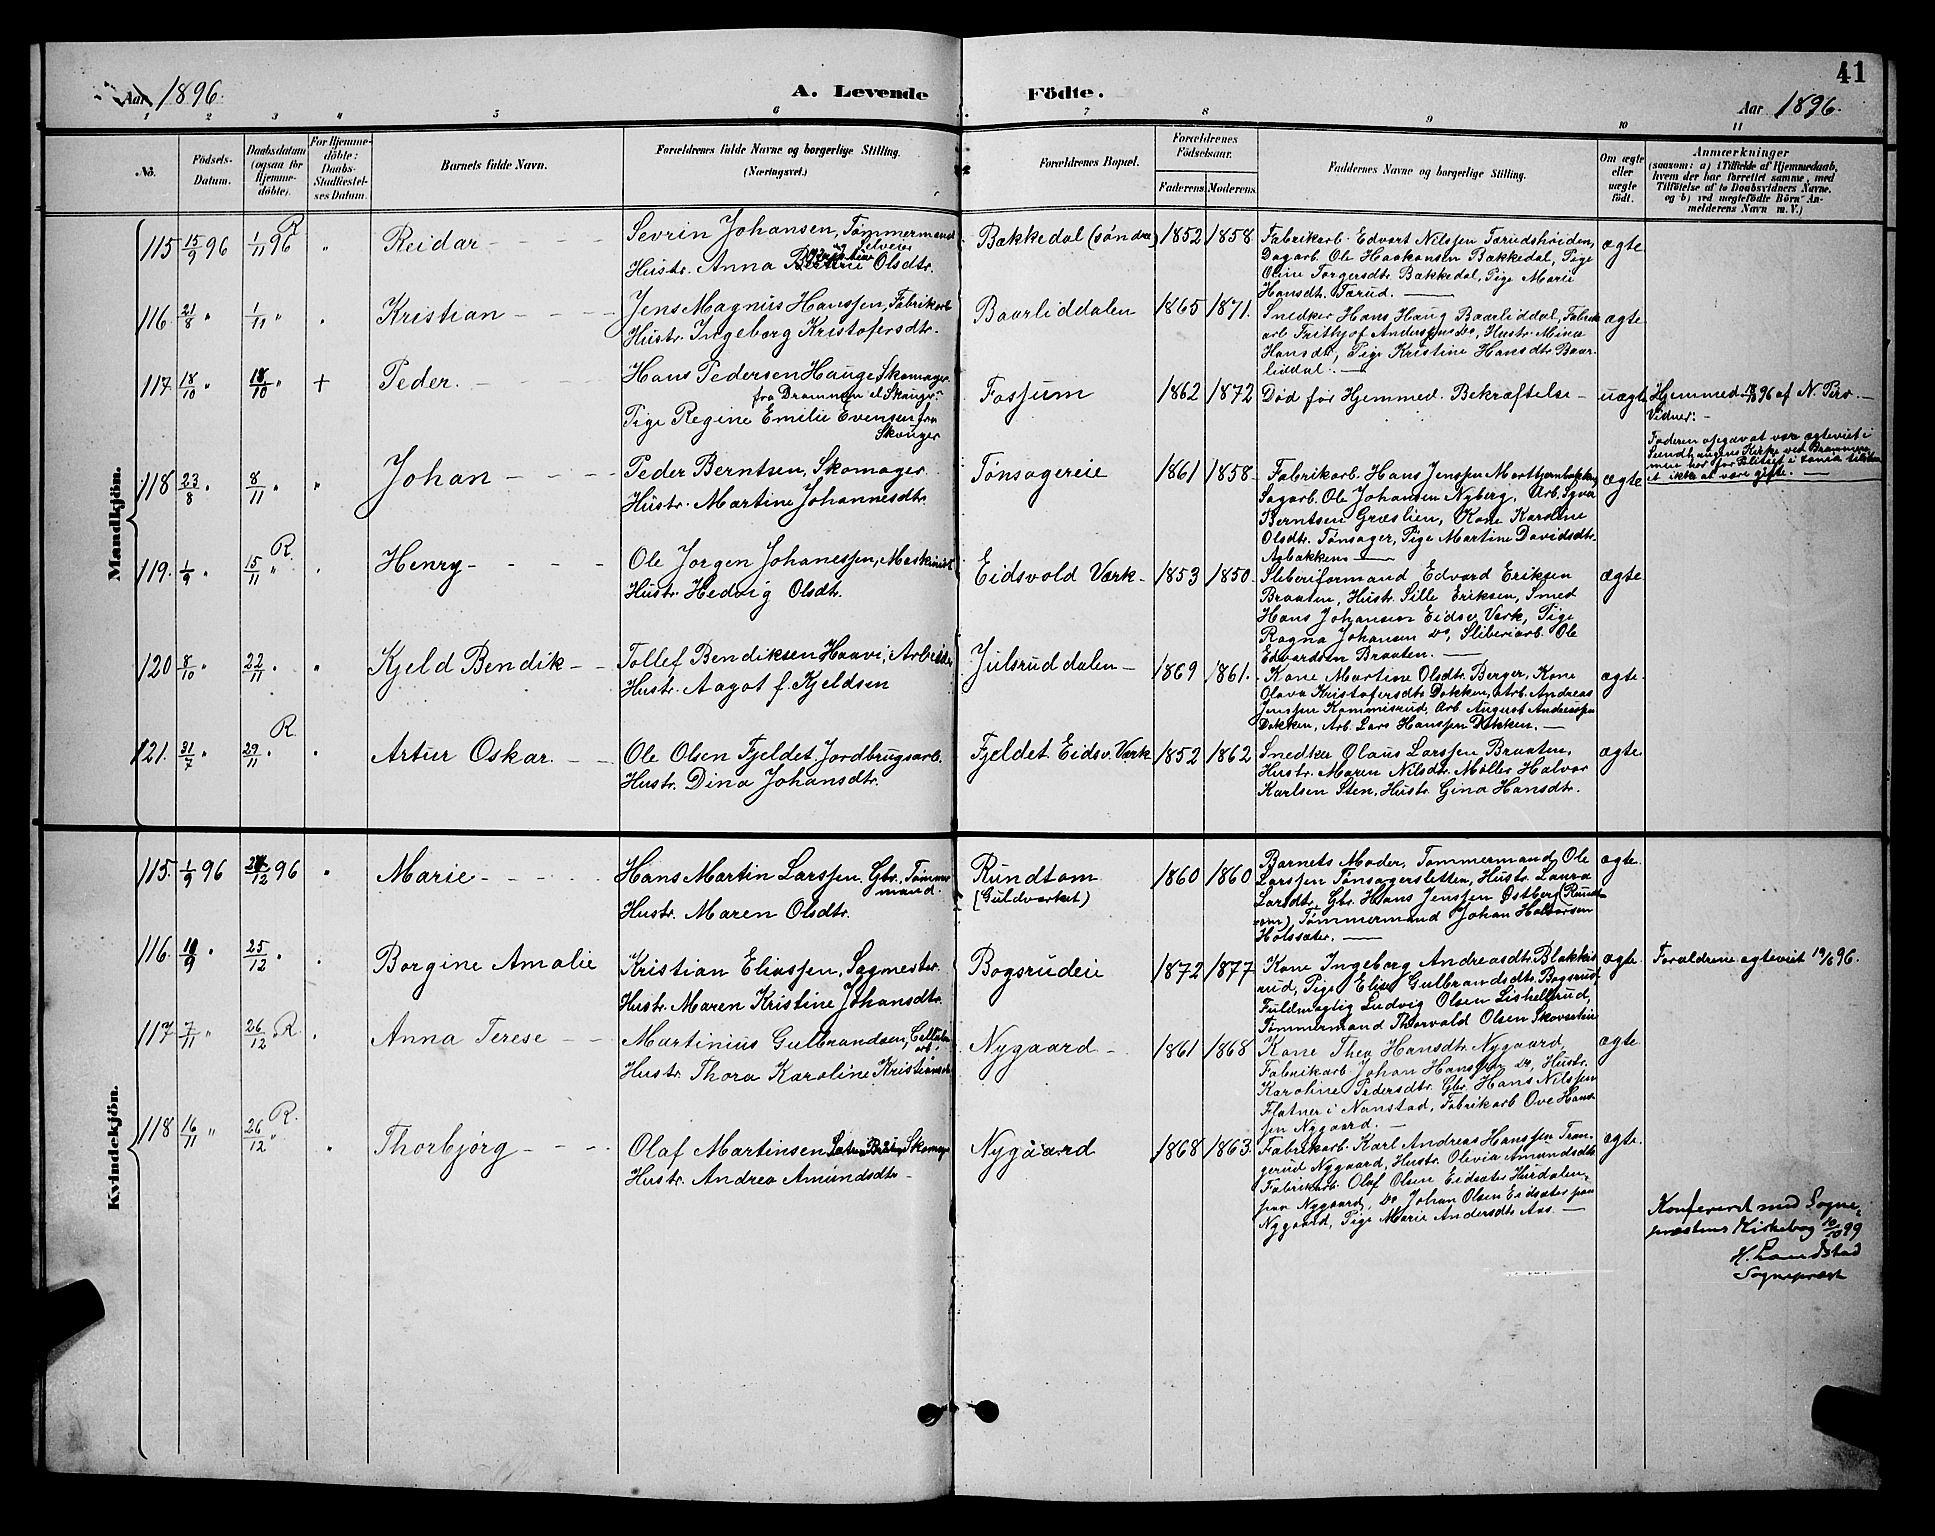 41
Aar 1896.
A. Levende
Födte.
Aar 1896.
1 2 3 4 5 6 7 8 9 10 11
No.
Födsels-
Datum.
Daabsdatum
(ogsaa för
Hjemme-
döbte).
For Hjemme-
döbte:
Daabs-
Stadfæstel-
ses Datum.
Barnets fulde Navn.
Forældrenes fulde Navne og borgerlige Stilling.
(Næringsvei.)
Forældrenes Bopæl.
Forældrenes
Födselsaar.
Faderens.
Moderens.
Faddernes Navne og borgerlige Stilling.
Om ægte
eller
uægte
født.
Anmærkninger
(saasom: a) i Tilfælde af Hjemmedaab,
hvem der har forrettet samme, med
Tilföielse af to Daabsvidners Navne,
og b) ved uægtefödte Börn An-
melderens Navn m. V.)
Mandkjön.
115 15/9 96 1/11 96 R " Reidar
Sevrin Johansen, Tømmermand
og Selveier
Hustr. Anna Olsdtr.
Bakkedal (søndre) 1852 1858
Fabrikarb. Edvart Nilssen Tærudshøiden,
Dagarb. Ole Haakonsen Bækkedal, Pige
Oline Torgersdtr. Bækkedal, Pige Marie
Hansdt. Tærud.
ægte
116 21/8 " 1/11 " " Kristian
Jens Magnus Hanssen, Fabrikarb
Hustr. Ingeborg Kristofersdtr.
Baarliddalen 1865 1871.
Snedker Hans Haug Baarliddal, Fabrik
arb Frithjof Anderssen Do, Hustr. Mina
Hansdtr, Pige Kristine Hansdtr Baar-
liddal.
ægte
117 18/10 " 18/10 " + Peder.
Hans Pedersen Hauge Skomager
fra Drammen el Skauger
Pige Regine Emilie Evensen fra
Skauger
Fossum 1862 1872
Død før Hjemmed. Bekræftelse
uægte
Hjemmed 18/10 96 af N. Pers.
Vidner:
Faderen opgav at være ægteviet i
118 23/8 " 8/11 " " Johan
Peder Berntsen, Skomager
Hustr. Martine Johannesdtr.
Tønsagereie 1861 1858
Fabrikarb. Hans Jenssen
Sagarb. Ole Johansen Nyberg, Arb.
Berntsen Græslien, Kone Karoline
Olsdtr. Tønsager, Pige Martine Davidsdtr.
Asbakken
ægte
et ikke at være gifte.
119. 1/9 " 15/11 " R. " Henry
Ole Jørgen Johanessen, Maskinist
Hustr. Hedvig Olsdtr.
Eidsvold Værk 1853 1850.
Sliberiformand Edvard Eriksen
Braaten, Hustr. Sille Eriksen, Smed
Hans Johansen Eidsv. Værk, Pige
Ragna Johansen Do, Sliberiarb. Ole
Edvardsen Braaten.
ægte
120 8/10 " 22/11 " " Kjeld Bendik
Tollef Bendiksen Haavi, Arbeider
Hustr. Aagot f. Kjeldsen
Julsruddalen 1869 1861.
Kone Martine Olsdtr. Berger, Kone
Olava Kristofersdtr Dokken, Arb. Andreas
Jenssen Kommisrud, Arb August Andreassen
Dokken, Arb. Lars Hanssen Dokken.
ægte
121. 31/7 " 29/11 " R. " Artur Oskar.
Ole Olsen Fjeldet, Jordbrugsarb.
Hustr. Dina Johansdtr.
Fjeldet Eidsv. Værk 1852 1862
Snedker Olaus Larssen Braaten,
Hustr. Maren Nilsdtr. Møller Halvor
Karlsen Sten, Hustr. Gina Hansdtr.
ægte
Kvindekjön.
115. 1/9 96 /12 96 " Marie
Hans Martin Larssen, Gbr. Tømmer
mand.
Hustr. Maren Olsdtr.
Rundtom
(Guldværket)
1860 1860
Barnets Moder, Tømmermand Ole
Larssen Tønsagersletten, Hustr. Laura
Larsdtr, Gbr. Hans Jenssen Østberg (Rundt-
om) Tømmermand Johan Halvorsen
Holssæter.
ægte
116. /9 " 25/12 " " Borgine Amalie
Kristian Eliassen, Sagmester
Hustr. Maren Kristine Johansdtr.
Bogsrudeie 1872 1877
Kone Ingeborg Andreasdtr Blakkis
rud, Pige Elise Gulbrandsdtr. Bogsrud,
Fuldmægtig Ludvig Olsen
Tømmermand Thorvald Olsen
ægte
Forældrene ægteviet 19/6 96.
117 7/11 " 26/12 R " Anna Terese
Martinius Gulbrandsen, Cellulose
arb.
Hustr. Thora Karoline Kristiansdt
Nygaard 1861 1868
Kone Thea Hansdtr. Nygaard,
Fabrikarb Johan Hanssen Do, Hustr.
Karoline Pedersdtr. Gbr. Hans Nilssen
Flatner i Nanstad, Fabrikarb Ove Hans-
sen Nygaard.
ægte
118 16/11 " 26/12 " R. " Thorbjørg
Olaf Martinsen Skomager
Hustr. Andrea Amundsdtr
Nygaard 1868 1863.
Fabrikarb. Karl Andreas Hanssen Tran-
gerud Nygaard, Hustr. Olivia Amundsdtr
Fabrikarb. Olaf Olsen Eidsæter Hurdalen,
paa Nygaard, Do Johan Olsen Eidsæter paa
Nygaard, Pige Marie Andersdtr Aas.
ægte
Konfereret med Sogne-
præstens Kirkebog 10/10 99
H. Landstad
Sogneprest